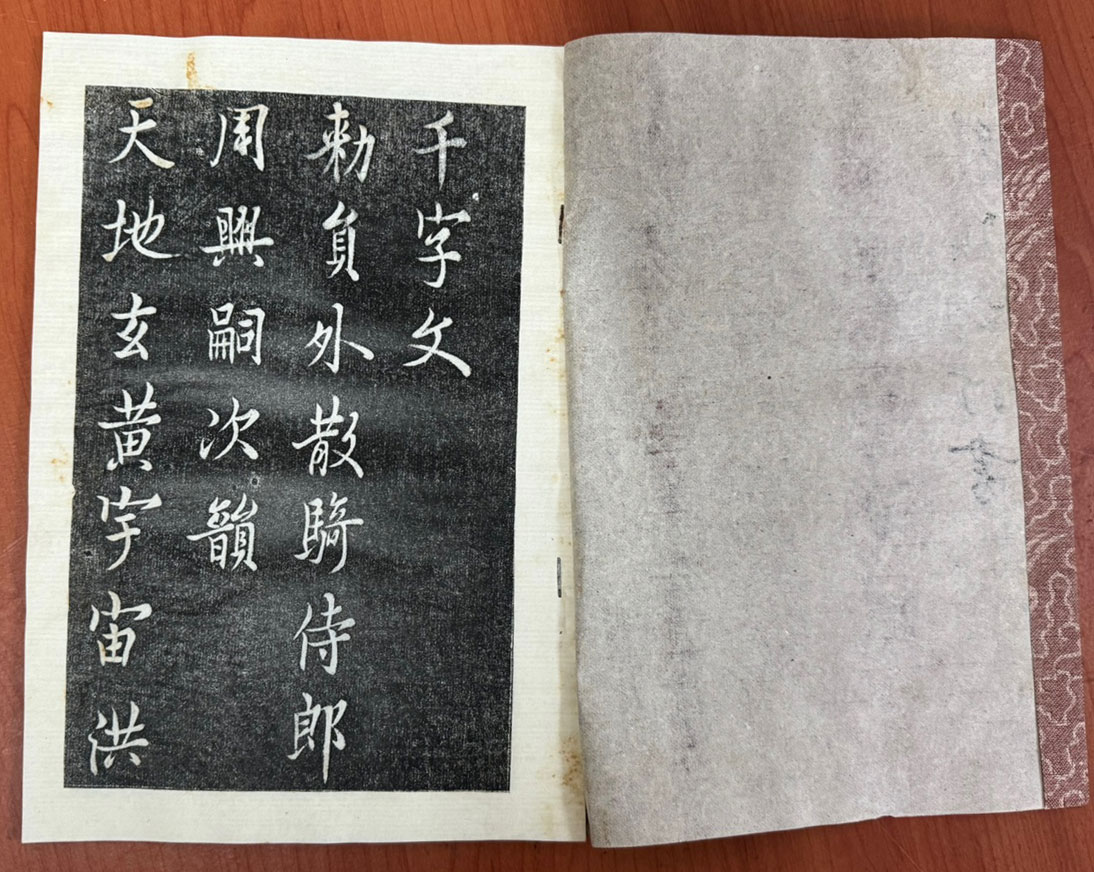 千字文
勑員外散騎侍郎
周興嗣次韻
天地玄黃宇宙洪
書